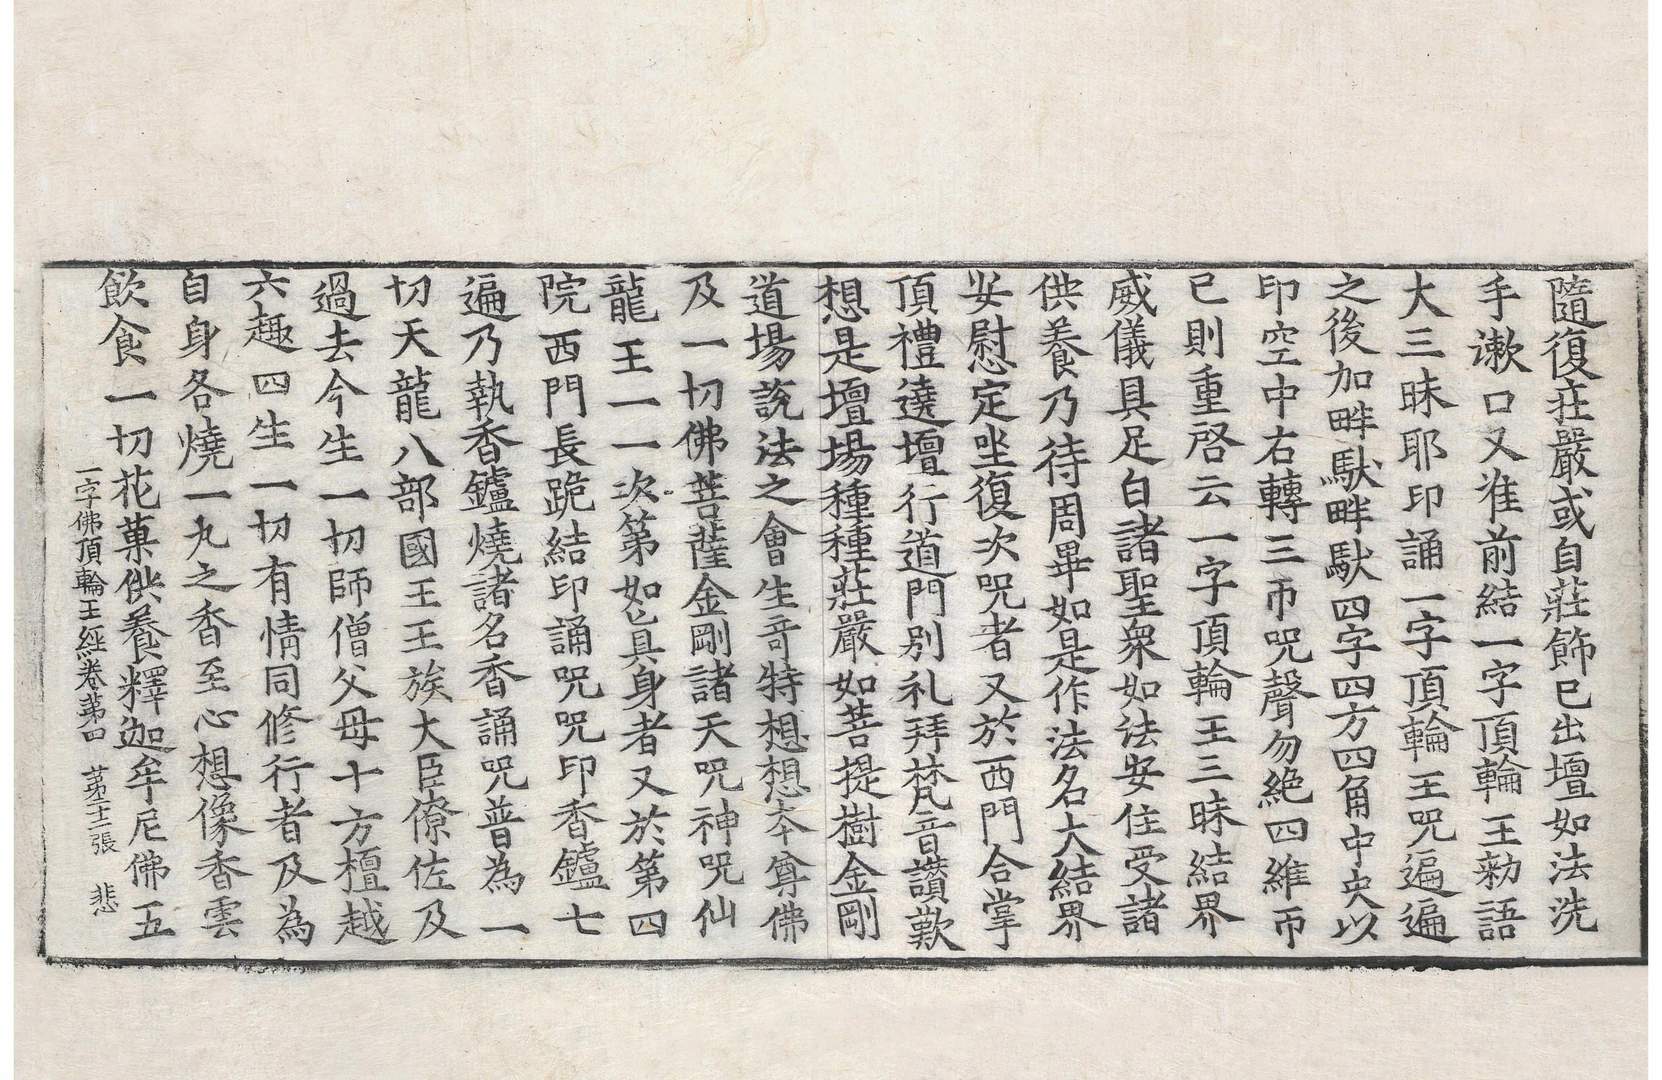 隨復莊嚴或自莊飾已出壇如法洗
手漱口又准前結一字頂輪王勑語
大三昧耶印誦一字頂輪王呪遍遍
之後加畔馱畔馱四字四方四角中央以
印空中右轉三帀呪聲勿絶四維帀
已則重啓云一字頂輪王三昧結界
威儀具足白諸聖衆如法安住受諸
供養乃待周畢如是作法名大結界
安慰定坐復次呪者又於西門合掌
頂禮遶壇行道門別礼拜梵音讚歎
想是壇場種種莊嚴如菩提樹金剛
道場說法之會生竒特想想本尊佛
及一切佛菩薩金剛諸天呪神呪仙
龍王一一次第如怠具身者又於第四
院西門長跪結印誦呪呪印香鑪七
遍乃執香鑪燒諸名香誦呪普為一
切天龍八部國王王族大臣僚佐及
過去今生一切師僧父母十方檀越
六趣四生一切有情同修行者及為
自身各燒一丸之香至心想像香雲
飲食一切花菓供養釋迦牟尼佛五
一字佛頂輪王經卷第四 第二十二張 悲